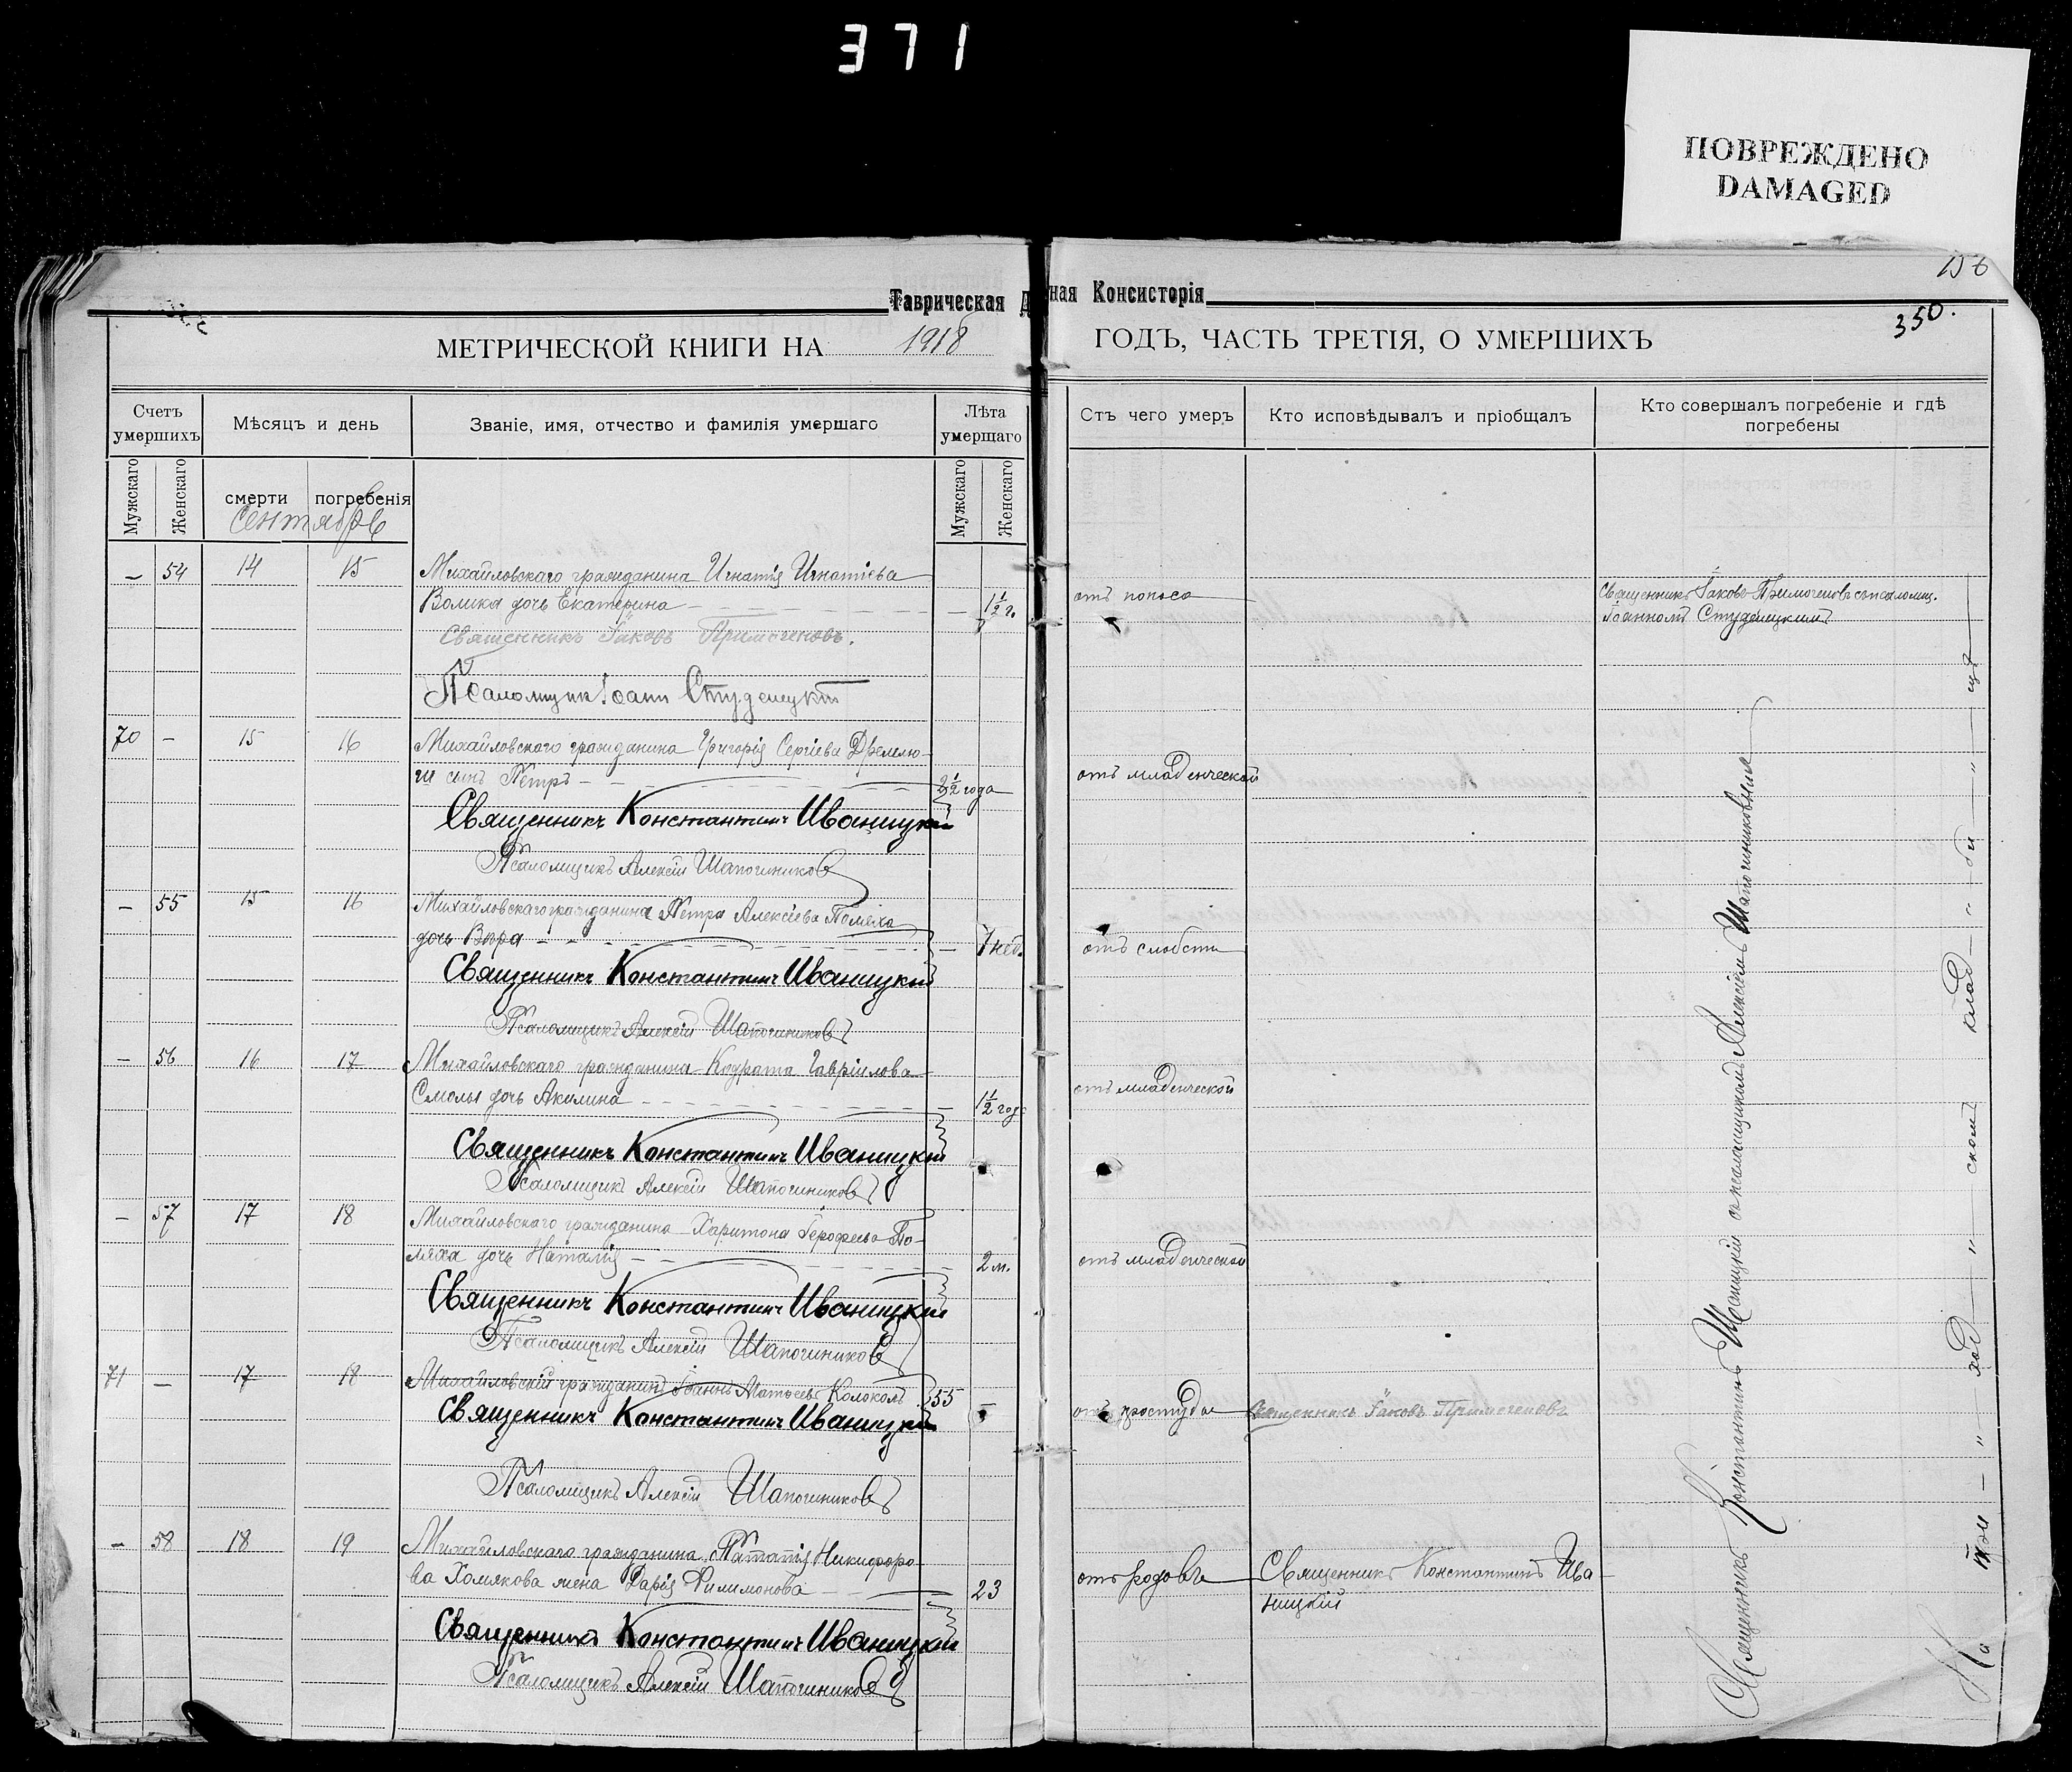 371
ПОВРЕЖДЕНО
DAMAGED
156
350.
Таврическая Д
ная Консисторія
МЕТРИЧЕСКОЙ КНИГИ НА 1918
ГОДЪ, ЧАСТЬ ТРЕТІЯ, О УМЕРШИХЪ
Счетъ умершихъ
Мѣсяцъ и день
Званіе, имя, отчество и фамилія умершаго
Лѣта умершаго
Стъ чего умеръ
Кто исповѣдывалъ и пріобщалъ
Кто совершалъ погребеніе и гдѣ погребены
Мужскаго
Женскаго
смерти
погребенія
Мужскаго
Женскаго
Сентябрь
– 54 14 15 Михайловскаго гражданина Игнатія Игнатіева
Волика дочь Екатерина – 1½ г. отъ поноса
Священникъ Іаковъ Примогеновъ съ псаломщ.
Іоанномъ Студенецкимъ
Священникъ Іаковъ Примогеновъ.
Псаломщик Іоанн Студенецкій
70 – 15 16 Михайловскаго гражданина Григорія Сергіева Дремлю-
ги сынъ Петръ – 2½ года отъ младенческой
Священникъ Константинъ Иваницкій
Псаломщикъ Алексій Шапочниковъ
– 55 15 16 Михайловскаго гражданина Петра Алексіева Помяха
дочь Вѣра – 1 нед. отъ слабости
Священникъ Константинъ Иваницкій
Псаломщикъ Алексій Шапочниковъ
– 56 16 17 Михайловскаго гражданина Кодрата Гавріилова
Смолы дочь Акилина – 1½ год. отъ младенческой
Священникъ Константинъ Иваницкій
Псаломщикъ Алексій Шапочниковъ
– 57 17 18 Михайловскаго гражданина Харитона Іерофеева По-
мяха дочь Наталія – 2 м. отъ младенческой
Священникъ Константинъ Иваницкій
Псаломщикъ Алексій Шапочниковъ
71 – 17 18 Михайловскій гражданинъ Іоаннъ Матѳеевъ Колоколъ 55 – отъ простуды Священникъ Іаковъ Примогеновъ
Священникъ Константинъ Иваницкій
Псаломщикъ Алексій Шапочниковъ
– 58 18 19 Михайловскаго гражданина Игнатія Никифоро-
ва Хомякова жена Дарія Филимонова – 23 отъ родовъ Священникъ Константинъ Ива-
ницкій
Священникъ Константинъ Иваницкій
Псаломщикъ Алексій Шапочниковъ
Священникъ Константинъ Иваницкій съ псаломщикомъ Алексіемъ Шапочниковымъ
На при – " – ход – " – скомъ клад – " – би – " – щѣ